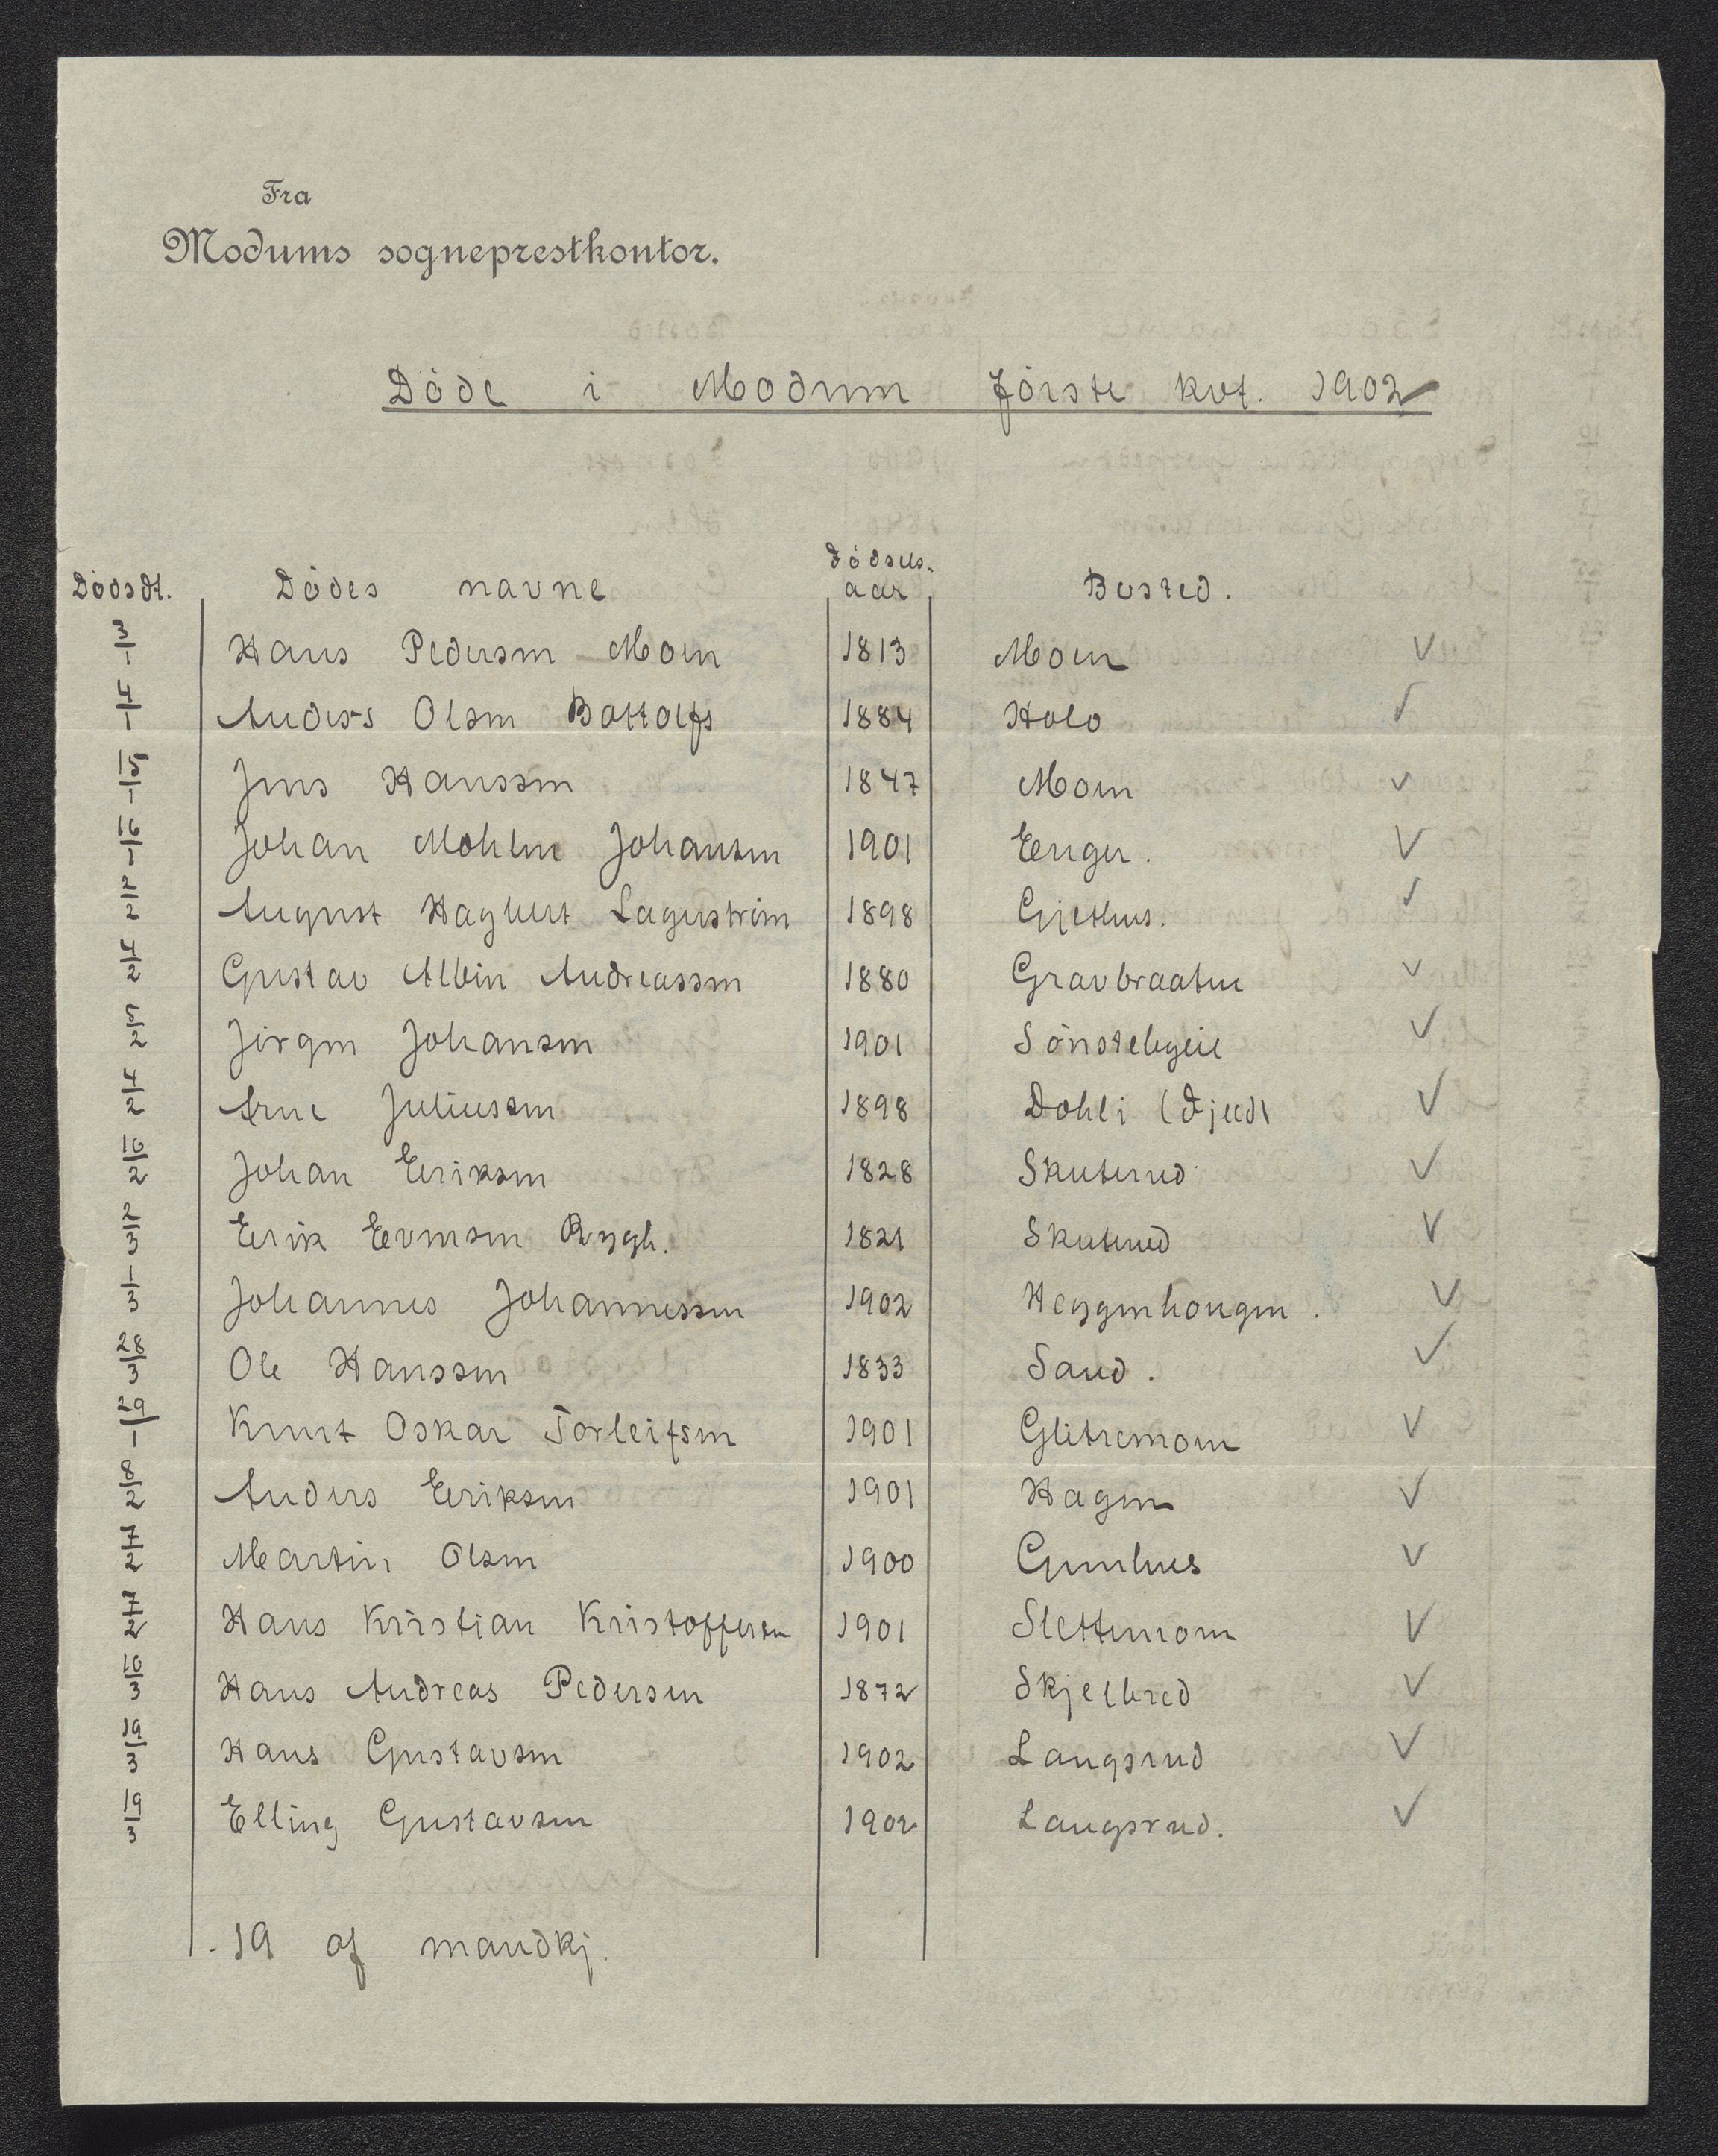 Fra
Modums sogneprestkontor.
Döde i Modum förste kvt. 1902
Dödsdt. Dödes navne Födsels-aar Bosted.
3/1 Hans Pedersen Moen 1813 Moen ✓
4/1 Anders Olsen Bottolfs 1884 Holo ✓
15/1 Jens Hanssen 1847 Moen ✓
16/1 Johan Mohlen Johansen 1901 Enger. ✓
2/2 August Hagbert Lagerström 1898 Gjethus. ✓
4/2 Gustav Albin Andreassen 1880 Gravbraaten ✓
5/2 Jörgen Johansen 1901 Sönstebyeie ✓
4/2 Arne Juliussen 1898 Dohli ✓
10/2 Johan Eriksen 1828 Skuterud ✓
2/3 Erik Evensen Rygh. 1821 Skuterud ✓
1/3 Johannes Johannessen 1902 Heggenhougen. ✓
28/3 Ole Hanssen 1833 Sand. ✓
29/1 Knut Oskar Torleifsen 1901 Glitremoen ✓
8/2 Anders Eriksen 1901 Hagen ✓
7/2 Martin Olsen 1900 Gunhus ✓
7/2 Hans Kristian Kristoffersen 1901 Slettemoen ✓
10/3 Hans Andreas Pedersen 1872 Skjelbred ✓
19/3 Hans Gustavsen 1902 Langsrud ✓
19/3 Elling Gustavsen 1902 Langsrud. ✓
19 af mandkj.